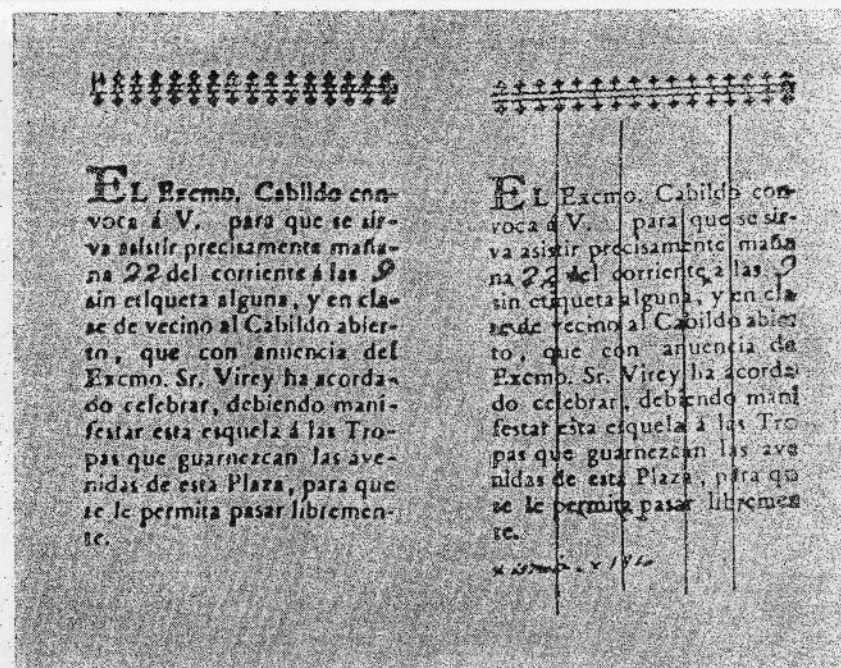 EL Excmo. Cabildo con-
voca á V. para que se sir-
va asistir precisamente maña-
na 22 del corriente á las 9
sin etiqueta alguna, y en cla-
se de vecino al Cabildo abier-
to, que con anuencia del
Excmo. Sr. Virey ha acorda-
do celebrar, debiendo mani-
festar esta esquela á las Tro-
pas que guarnezcan las ave-
nidas de esta Plaza, para que
se le permita pasar libremen-
te.
EL Excmo. Cabildo con-
voca á V. para que se sir-
va asistir precisamente maña
na 22 del corriente a las 9
sin etiqueta alguna, y en cla
se de vecino al Cabildo abier
to, que con anuencia de
Excmo. Sr. Virey ha acorda
do celebrar, debiendo mani
festar esta esquela á las Tro
pas que guarnezcan las ave
nidas de esta Plaza, para qu
se le permita pasar libremen
te.